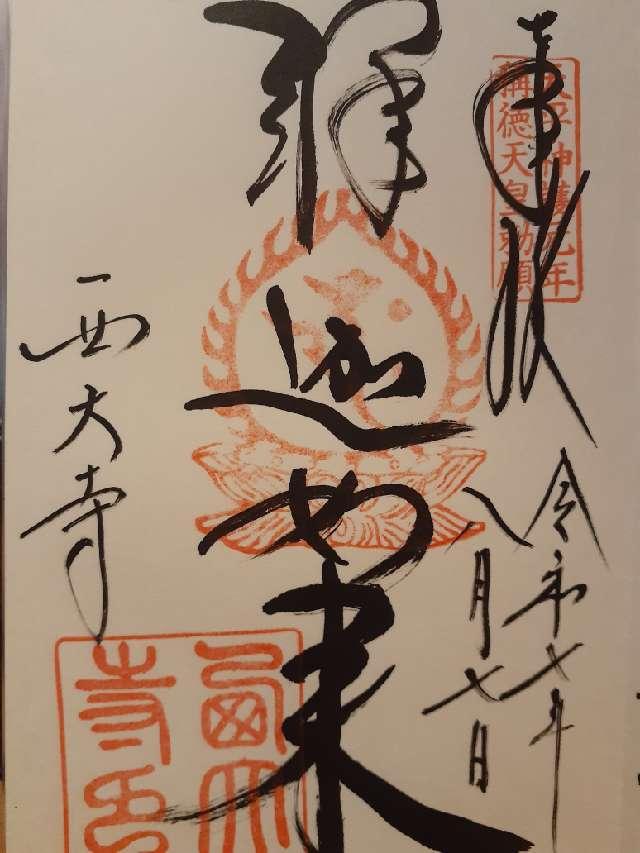 奉拝
天平神護元年
稱德天皇勅願
令和七年
八月七日
釋迦如来
西大寺
西大
寺印